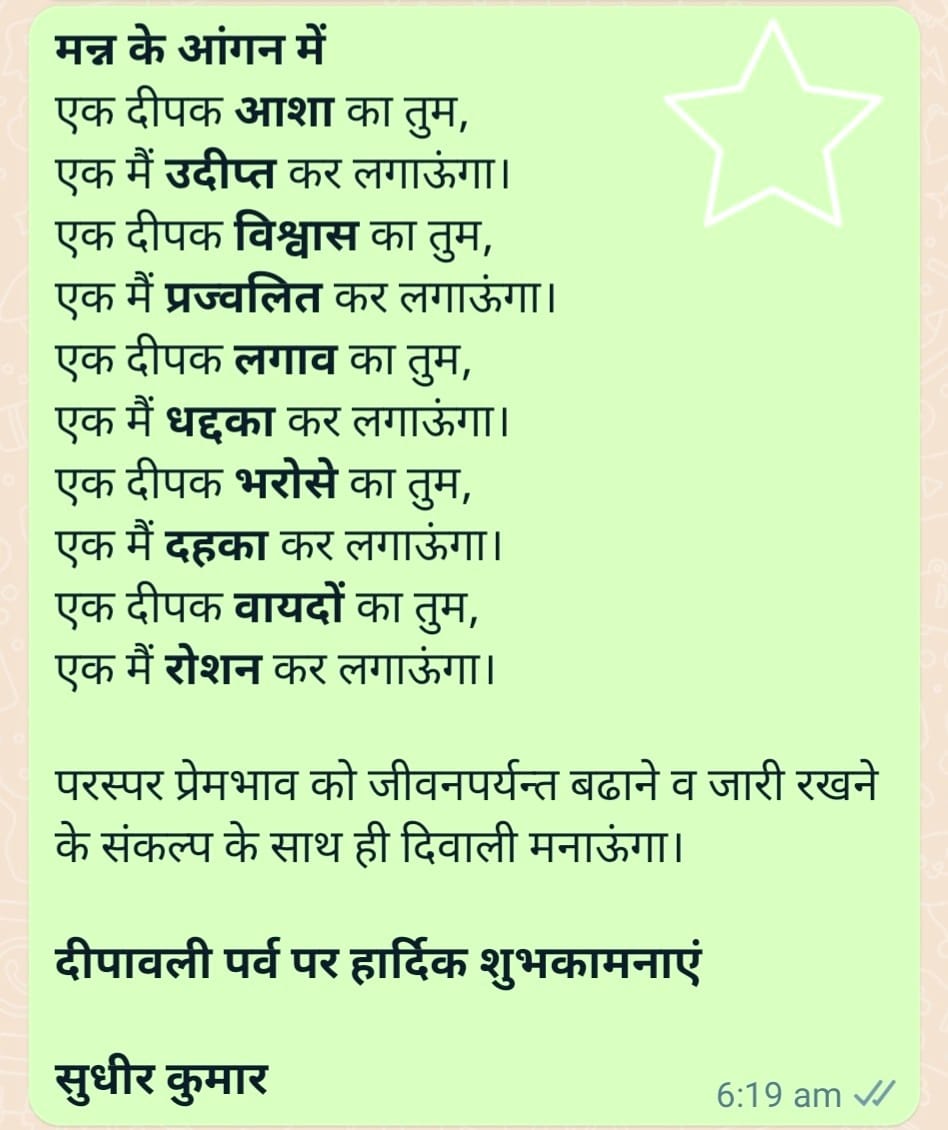 मन्न के आंगन में
एक दीपक आशा का तुम,
एक मैं उदीप्त कर लगाऊंगा।
एक दीपक विश्वास का तुम,
एक मैं प्रज्वलित कर लगाऊंगा।
एक दीपक लगाव का तुम,
एक मैं धद्दका कर लगाऊंगा।
एक दीपक भरोसे का तुम,
एक मैं दहका कर लगाऊंगा।
एक दीपक वायदों का तुम,
एक मैं रोशन कर लगाऊंगा।
परस्पर प्रेमभाव को जीवनपर्यन्त बढाने व जारी रखने
के संकल्प के साथ ही दिवाली मनाऊंगा।
दीपावली पर्व पर हार्दिक शुभकामनाएं
सुधीर कुमार
6:19 am